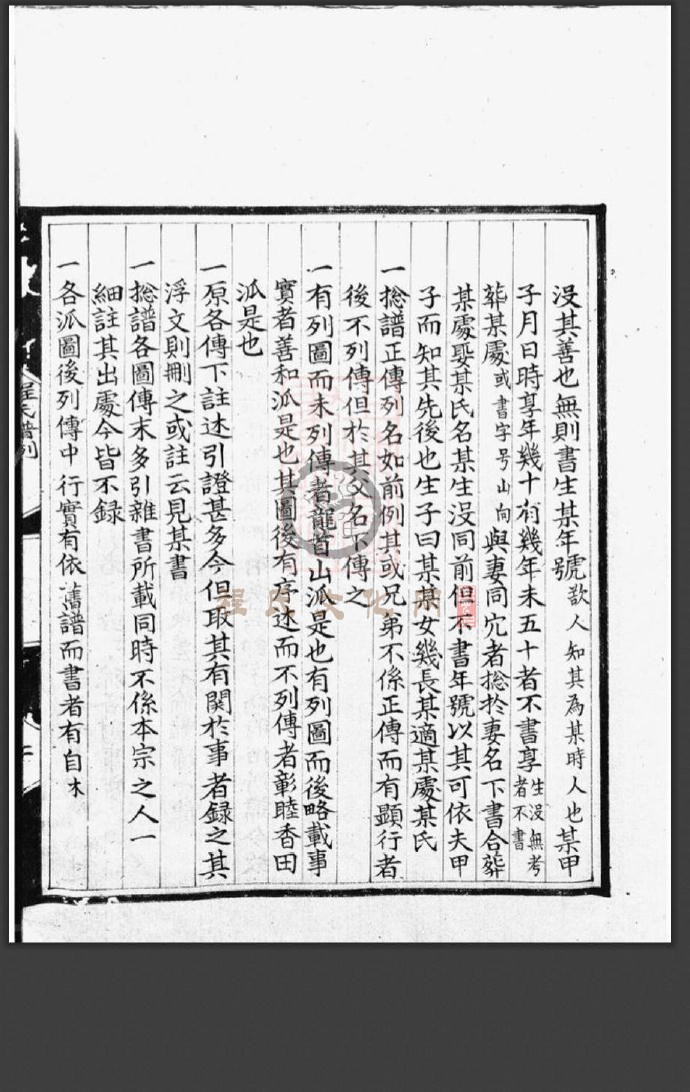 没其善也無則書生某年號欲人知其為某時人也某甲
子月日時享年幾十有幾年未五十者不書享生没無考者不書
葬某處或書字号山向與妻同穴者捴扵妻名下書合葬
某處娶某氏名某生没同前但不書年號以其可依夫甲
子而知其先後也生子曰某某女幾長某適某處某氏
一捴譜正傳列名如前例其或兄弟不係正傳而有顯行者
後不列傳但扵其父名下傳之
一有列圖而未列傳者龍首山派是也有列圖而後略載事
實者善和派是也其圖後有序述而不列傳者彰睦香田
派是也
一原各傳下註述引證甚多今但取其有関扵事者録之其
浮文則刪之或註云見某書
一捴譜各圖傳末多引雜書所載同時不係本宗之人一
細註其出處今皆不録
一各派圖後列傳中行實有依舊譜而書者有自
程氏譜例
程氏文化網